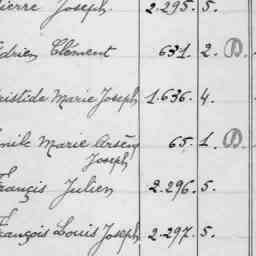 ierre Joseph. 2.295. 5.
drien Clément 631. 2. D.
istide Marie Joseph 1.636. 4.
mile Marie Arsèn 65. 1. D.
Joseph
François Julien 2.296. 5.
François Louis Joseph 2.297. 5.